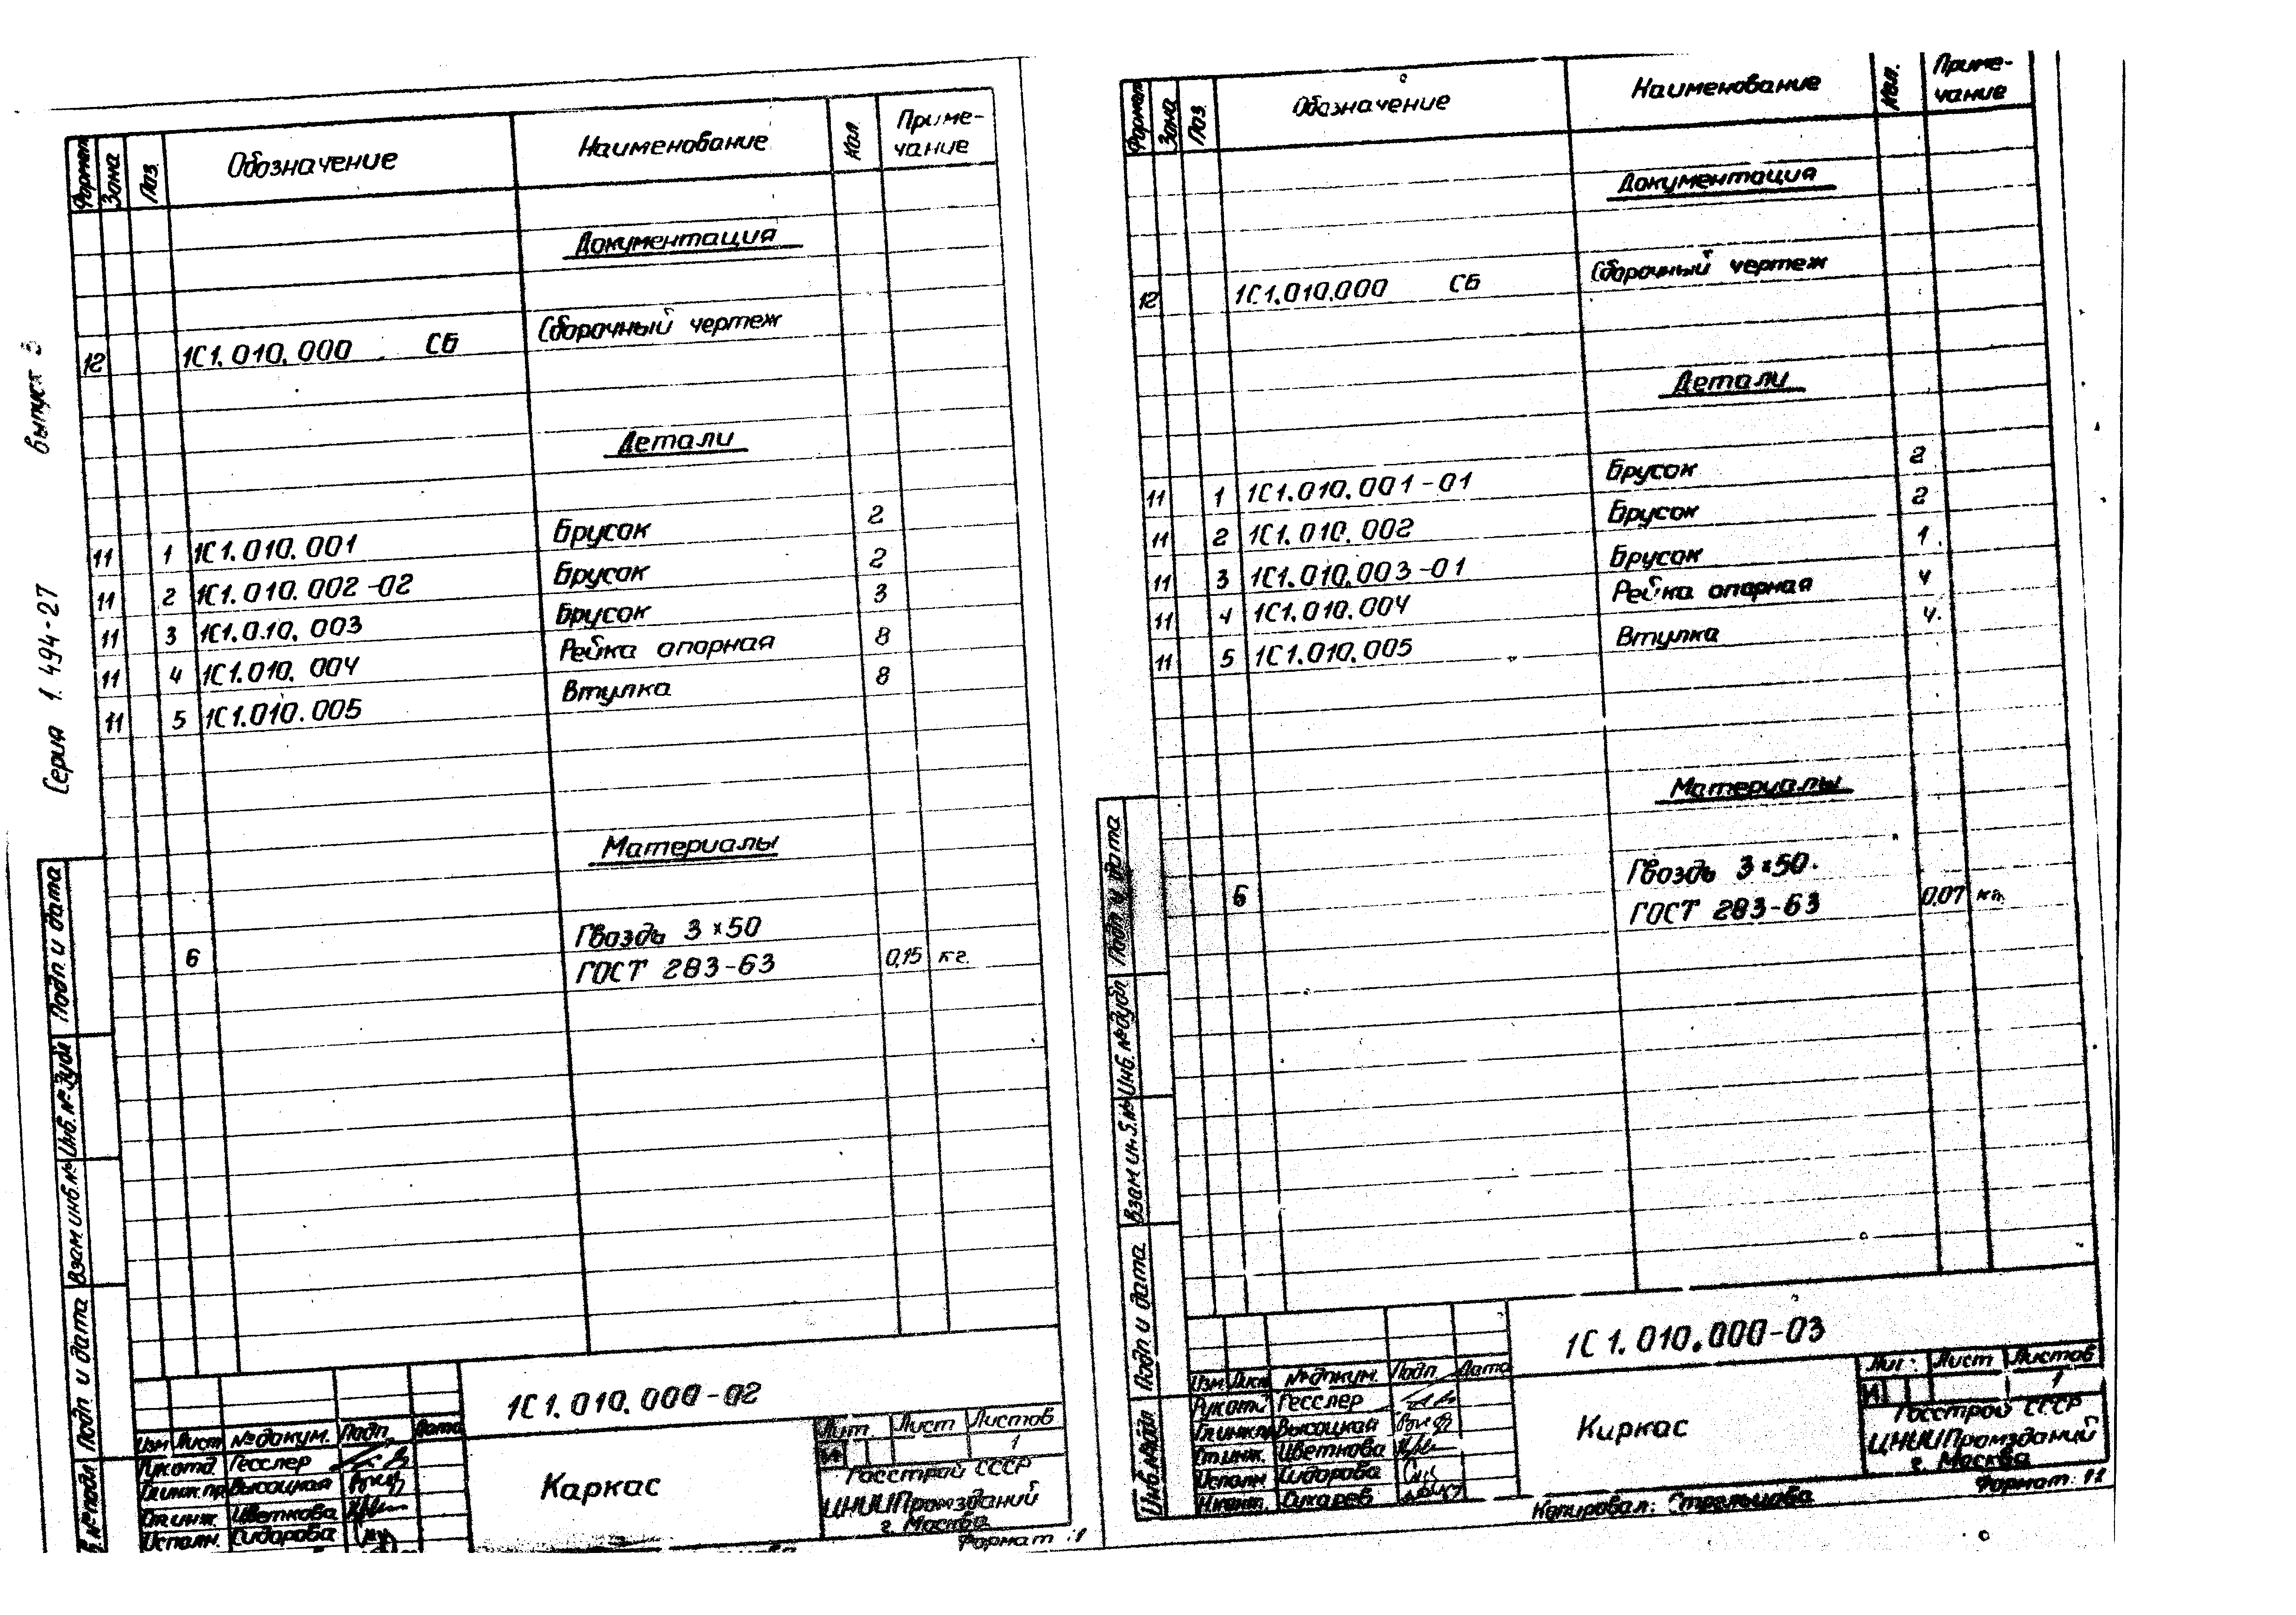 Серия 1.494-27 выпуск 3
Формат Зона Поз. Обозначение Наименование Кол Приме-
чание
Документация
12 1С1.010.000 СБ Сборочный чертеж
Детали
11 1 1С1.010.001 Брусок 2
11 2 1С1.010.002-02 Брусок 2
11 3 1С1.010.003 Брусок 3
11 4 1С1.010.004 Рейка опорная 8
11 5 1С1.010.005 Втулка 8
Материалы
Гвоздь 3×50
6 ГОСТ 283-63 0,15 кг.
Подп и дата
Инв. № дубл
Взам инв. №
Подп и дата
№ подл
1С1.010.000-02
Изм Лист № докум. Подп Дата
Рук отд Гесслер
Гл инж. пр Высоцкая
Ст инж. Цветкова
Исполн. Сидорова
Каркас
Лит Лист Листов
И 1
Госстрой СССР
ЦНИИПромзданий
г. Москва
Формат
Формат Зона Поз. Обозначение Наименование Кол. Приме-
чание
Документация
12 1С1.010.000 СБ Сборочный чертеж
Детали
11 1 1С1.010.001-01 Брусок 2
11 2 1С1.010.002 Брусок 2
11 3 1С1.010.003-01 Брусок 1
11 4 1С1.010.004 Рейка опорная 4
11 5 1С1.010.005 Втулка 4
Материалы
Гвоздь 3×50.
6 ГОСТ 283-63 0,07 кг.
Подп и дата
Инв. № дубл
Взам ин.в.№
Подп и дата
Инв. № подл
1С1.010.000-03
Изм Лист № докум. Подп Дата
Рук отд Гесслер
Гл инж пр Высоцкая
Ст инж. Цветкова
Исполн Сидорова
Н.конт. Сухарев
Каркас
Лит Лист Листов
И 1
Госстрой СССР
ЦНИИПромзданий
г. Москва
Копировал: Стрельцова Формат